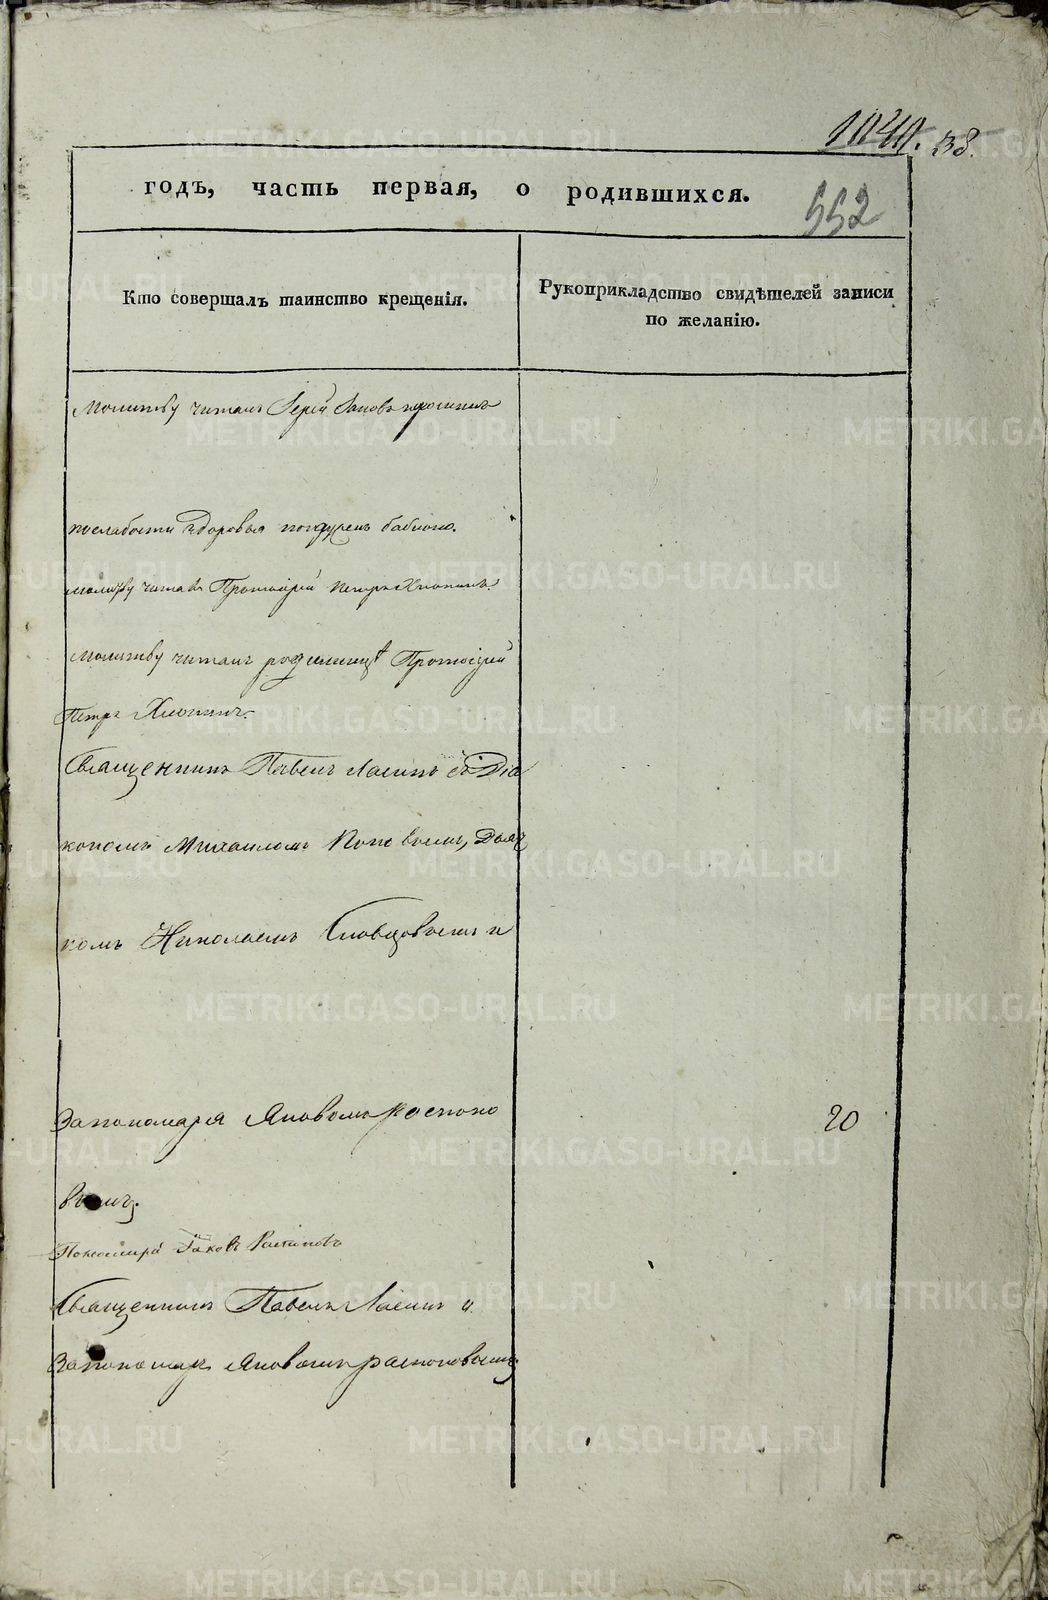 38.
годъ, часть первая, о родившихся.
552
Кто совершалъ таинство крещенія.
Рукоприкладство свидѣтелей записи
по желанію.
Молитву читалъ Іерей Іаковъ
послабости здоровья погружен бабкою.
молитву читалъ Протоіерей Петръ Хлопинъ.
Молитву читалъ родилицѣ Протоіерей
Петръ Хлопинъ.
Священникъ Павелъ Ласинъ съ Діа
кономъ Михаиломъ Поповымъ, Дьяч
комъ Николаемъ Словцовымъ и
Запономаря Яковомъ Распопо
вымъ.
Пономарь Іаковъ Распоповъ
Священникъ Павелъ Ласинъ и
Запономаря Яковомъ распоповымъ
20
METRIKI.GASO-URAL.RU